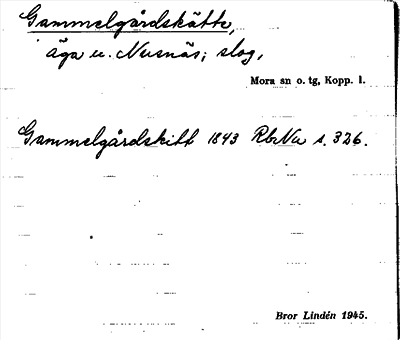 Gammelgårdskätte,
äga u. Nusnäs; slog,
Mora sn o. tg, Kopp. l.
Gammelgårdskitt 1843 RbNu s. 326.
Bror Lindén 1945.